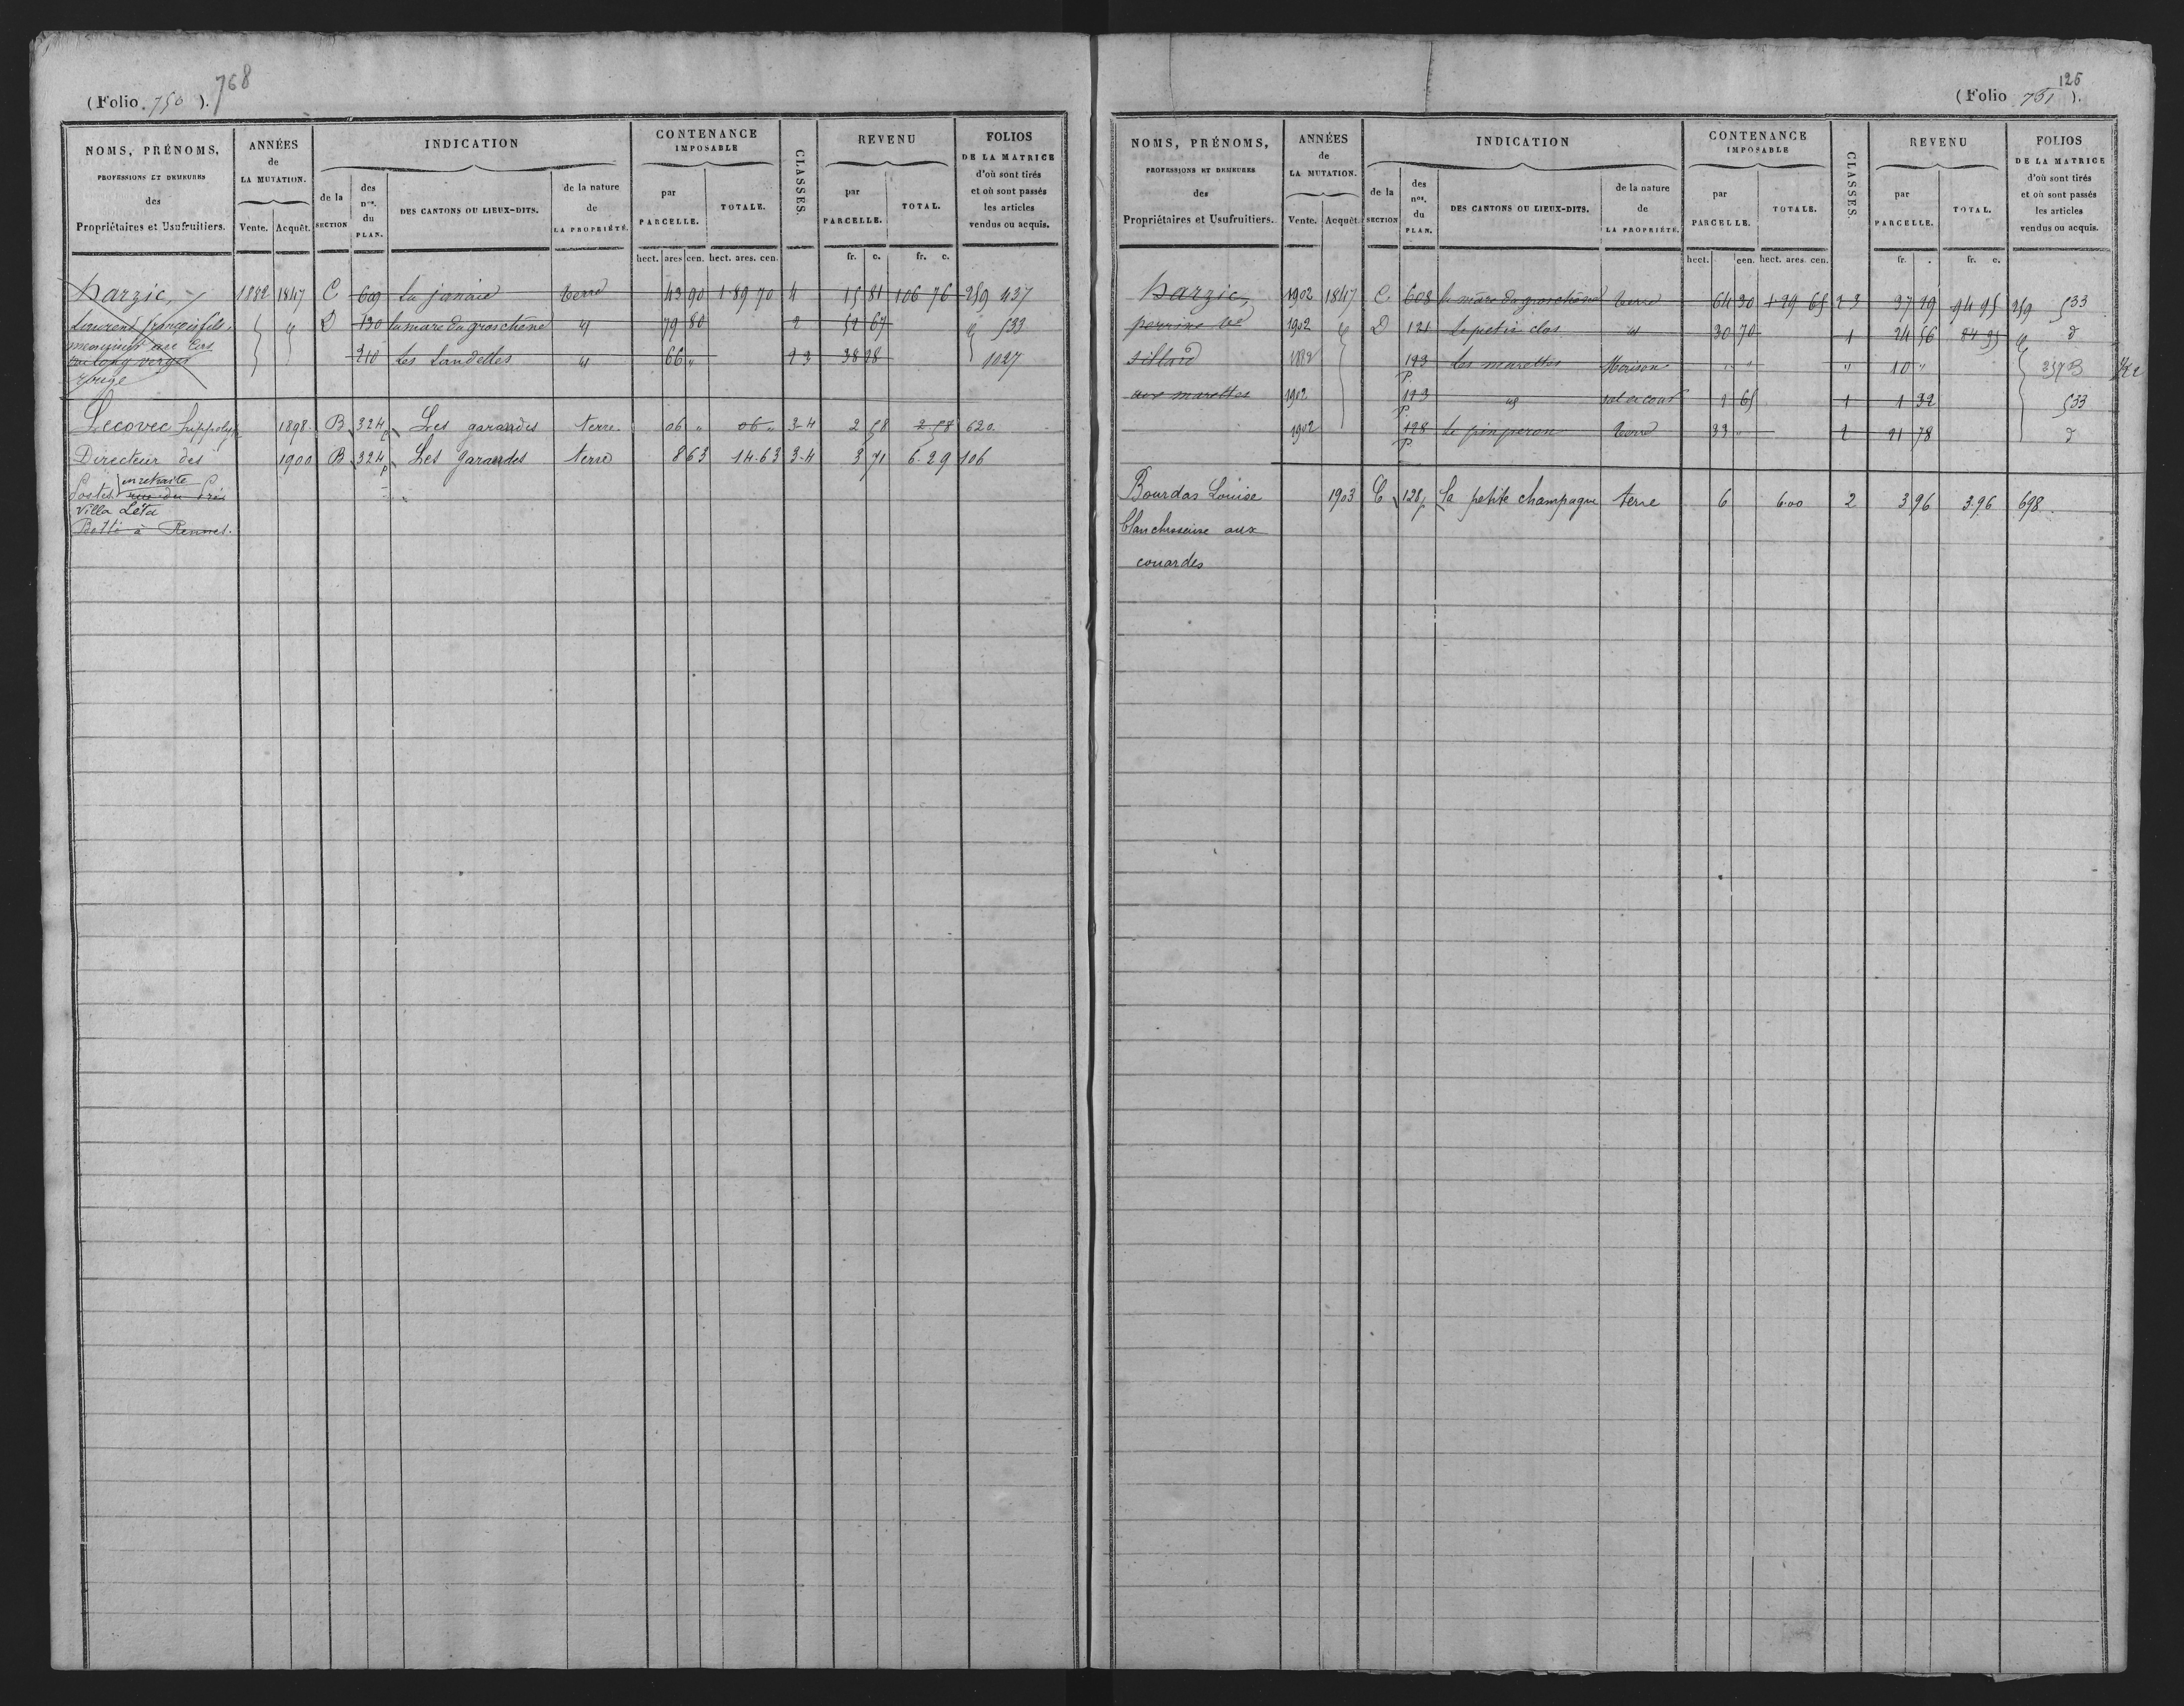 (Folio 750). 768
NOMS, PRÉNOMS, PROFESSIONS ET DEMEURES des Propriétaires et Usufruitiers.
ANNÉES de LA MUTATION. Vente. Acquêt.
INDICATION de la SECTION des nos. du PLAN. DES CANTONS OU LIEUX-DITS. de la nature de LA PROPRIÉTÉ.
CONTENANCE IMPOSABLE par PARCELLE. TOTALE.
CLASSES.
REVENU par PARCELLE. TOTAL.
FOLIOS DE LA MATRICE d'où sont tirés et où sont passés les articles vendus ou acquis.
hect. ares cen. hect. ares. cen. fr. c. fr. c.
harzic, 1882 1847 C 609 La janaie terre 43 90 1 89 70 4 15 81 106 76 259 437
Laurent françois fils, " D 130 la mare du gros chêne id 79 80 2 52 67 " 533
210 Les Landelles id 66 " 2 3 38 28 1027
rouge
Lecovec hippolyte 1898 B 324p Les garandes terre 06 " 06 " 3-4 2 58 2 58 620
Directeur des 1900 B 324p Les garandes terre 8 63 14-63 3-4 3 71 6-29 106
Postes en retraite rue du Pré
Villa Léta
Botté à Rennes.
125
(Folio 751).
NOMS, PRÉNOMS, PROFESSIONS ET DEMEURES des Propriétaires et Usufruitiers.
ANNÉES de LA MUTATION. Vente. Acquêt.
INDICATION de la SECTION des nos. du PLAN. DES CANTONS OU LIEUX-DITS. de la nature de LA PROPRIÉTÉ.
CONTENANCE IMPOSABLE par PARCELLE. TOTALE.
CLASSES.
REVENU par PARCELLE. TOTAL.
FOLIOS DE LA MATRICE d'où sont tirés et où sont passés les articles vendus ou acquis.
hect. cen. hect. ares. cen. fr. . fr. c.
harzic, 1902 1847 C 608 la mare du gros chêne terre 64 30 1 29 65 2 3 37 29 94 95 259 533
perrine ve 1902 " D 121 Le petit clos id 30 70 1 24 56 84 95 " d
sillard 1882 123 P. Les marettes Maison " " " 10 " 257 B
aux marettes 1902 123 P. id sol et cour 1 65 1 1 32 533
1902 128 P Le pinperon terre 33 " 2 21 78 d
Bourdas Louise 1903 C 128p La petite champagne terre 6 6.00 2 3 96 3.96 698
blanchisseuse aux
couardes